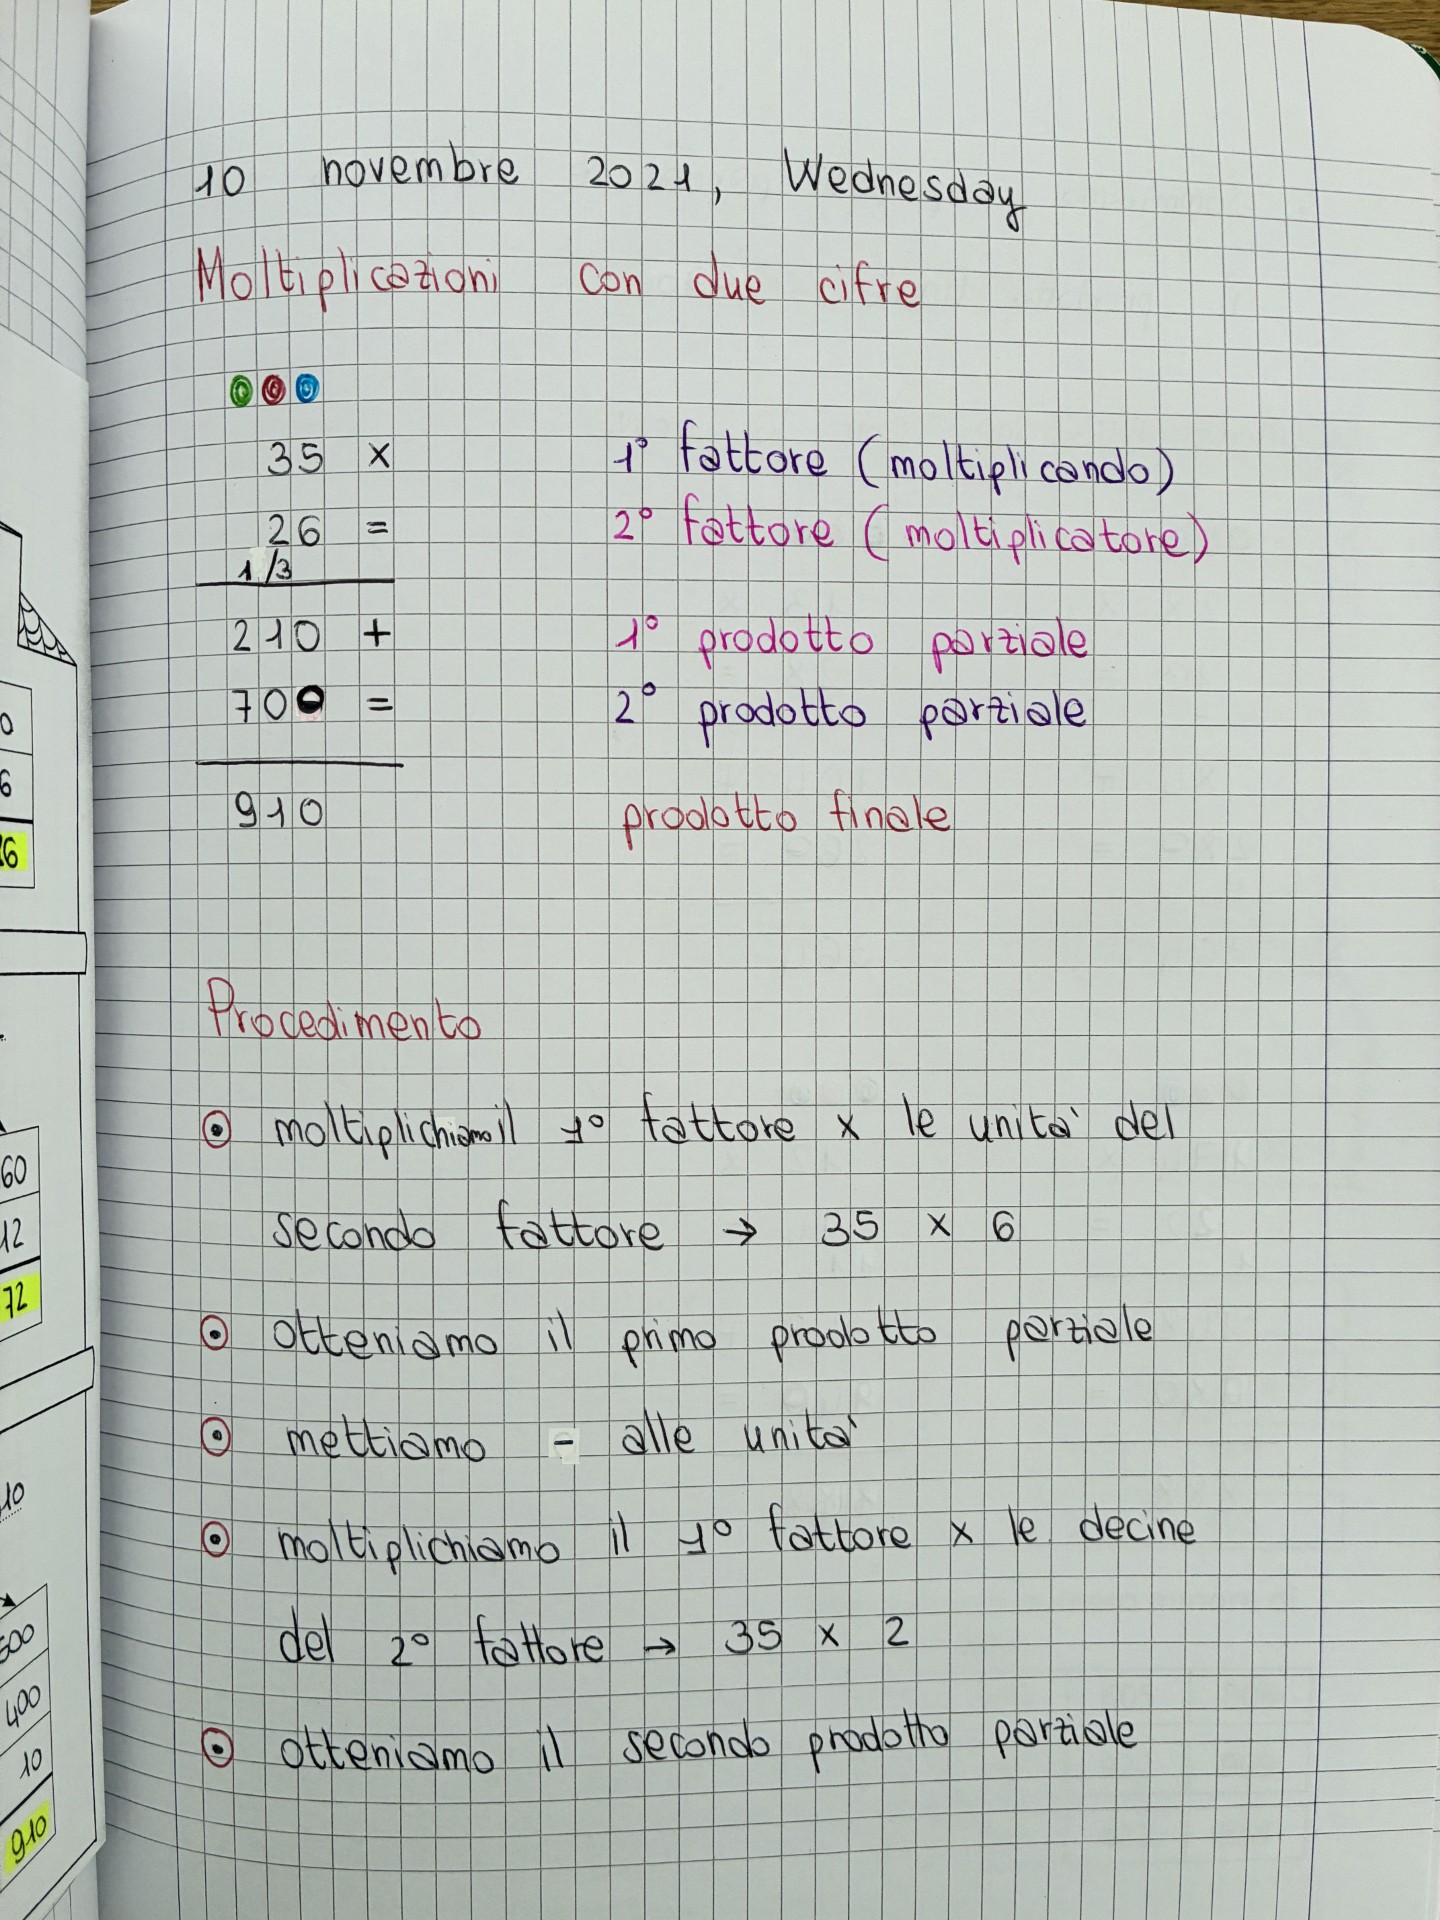 10 novembre 2021, Wednesday
Moltiplicazioni con due cifre
35 x 1° fattore (moltiplicando)
26 = 2° fattore (moltiplicatore)
1/3
210 + 1° prodotto parziale
700 = 2° prodotto parziale
910 prodotto finale
Procedimento
moltiplichiamo il 1° fattore x le unità del
secondo fattore → 35 x 6
otteniamo il primo prodotto parziale
mettiamo - alle unità
moltiplichiamo il 1° fattore x le decine
del 2° fattore → 35 x 2
otteniamo il secondo prodotto parziale
0
6
60
12
72
10
400
10
910